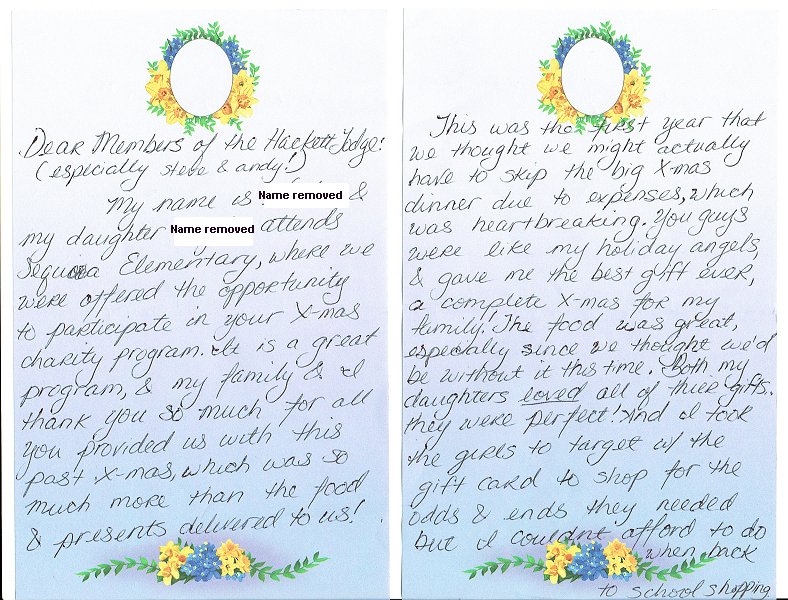 Dear Members of the Hackett Lodge!
(especially steve & andy!)
My name is Name removed &
my daughter Name removed attends
Sequoia Elementary, where we
were offered the opportunity
to participate in your X-mas
charity program. It is a great
program, & my family & I
thank you so much for all
you provided us with this
past X-mas, which was so
much more than the food
& presents delivered to us!
This was the first year that
we thought we might actually
have to skip the big X-mas
dinner due to expenses, which
was heartbreaking. You guys
were like my holiday angels,
& gave me the best gift ever,
a complete X-mas for my
family. The food was great,
especially since we thought we'd
be without it this time. Both my
daughters loved all of their gifts.
they were perfect! And I took
the girls to target w/ the
gift card to shop for the
odds & ends they needed
but I couldnt afford to do
when back
to school shopping.